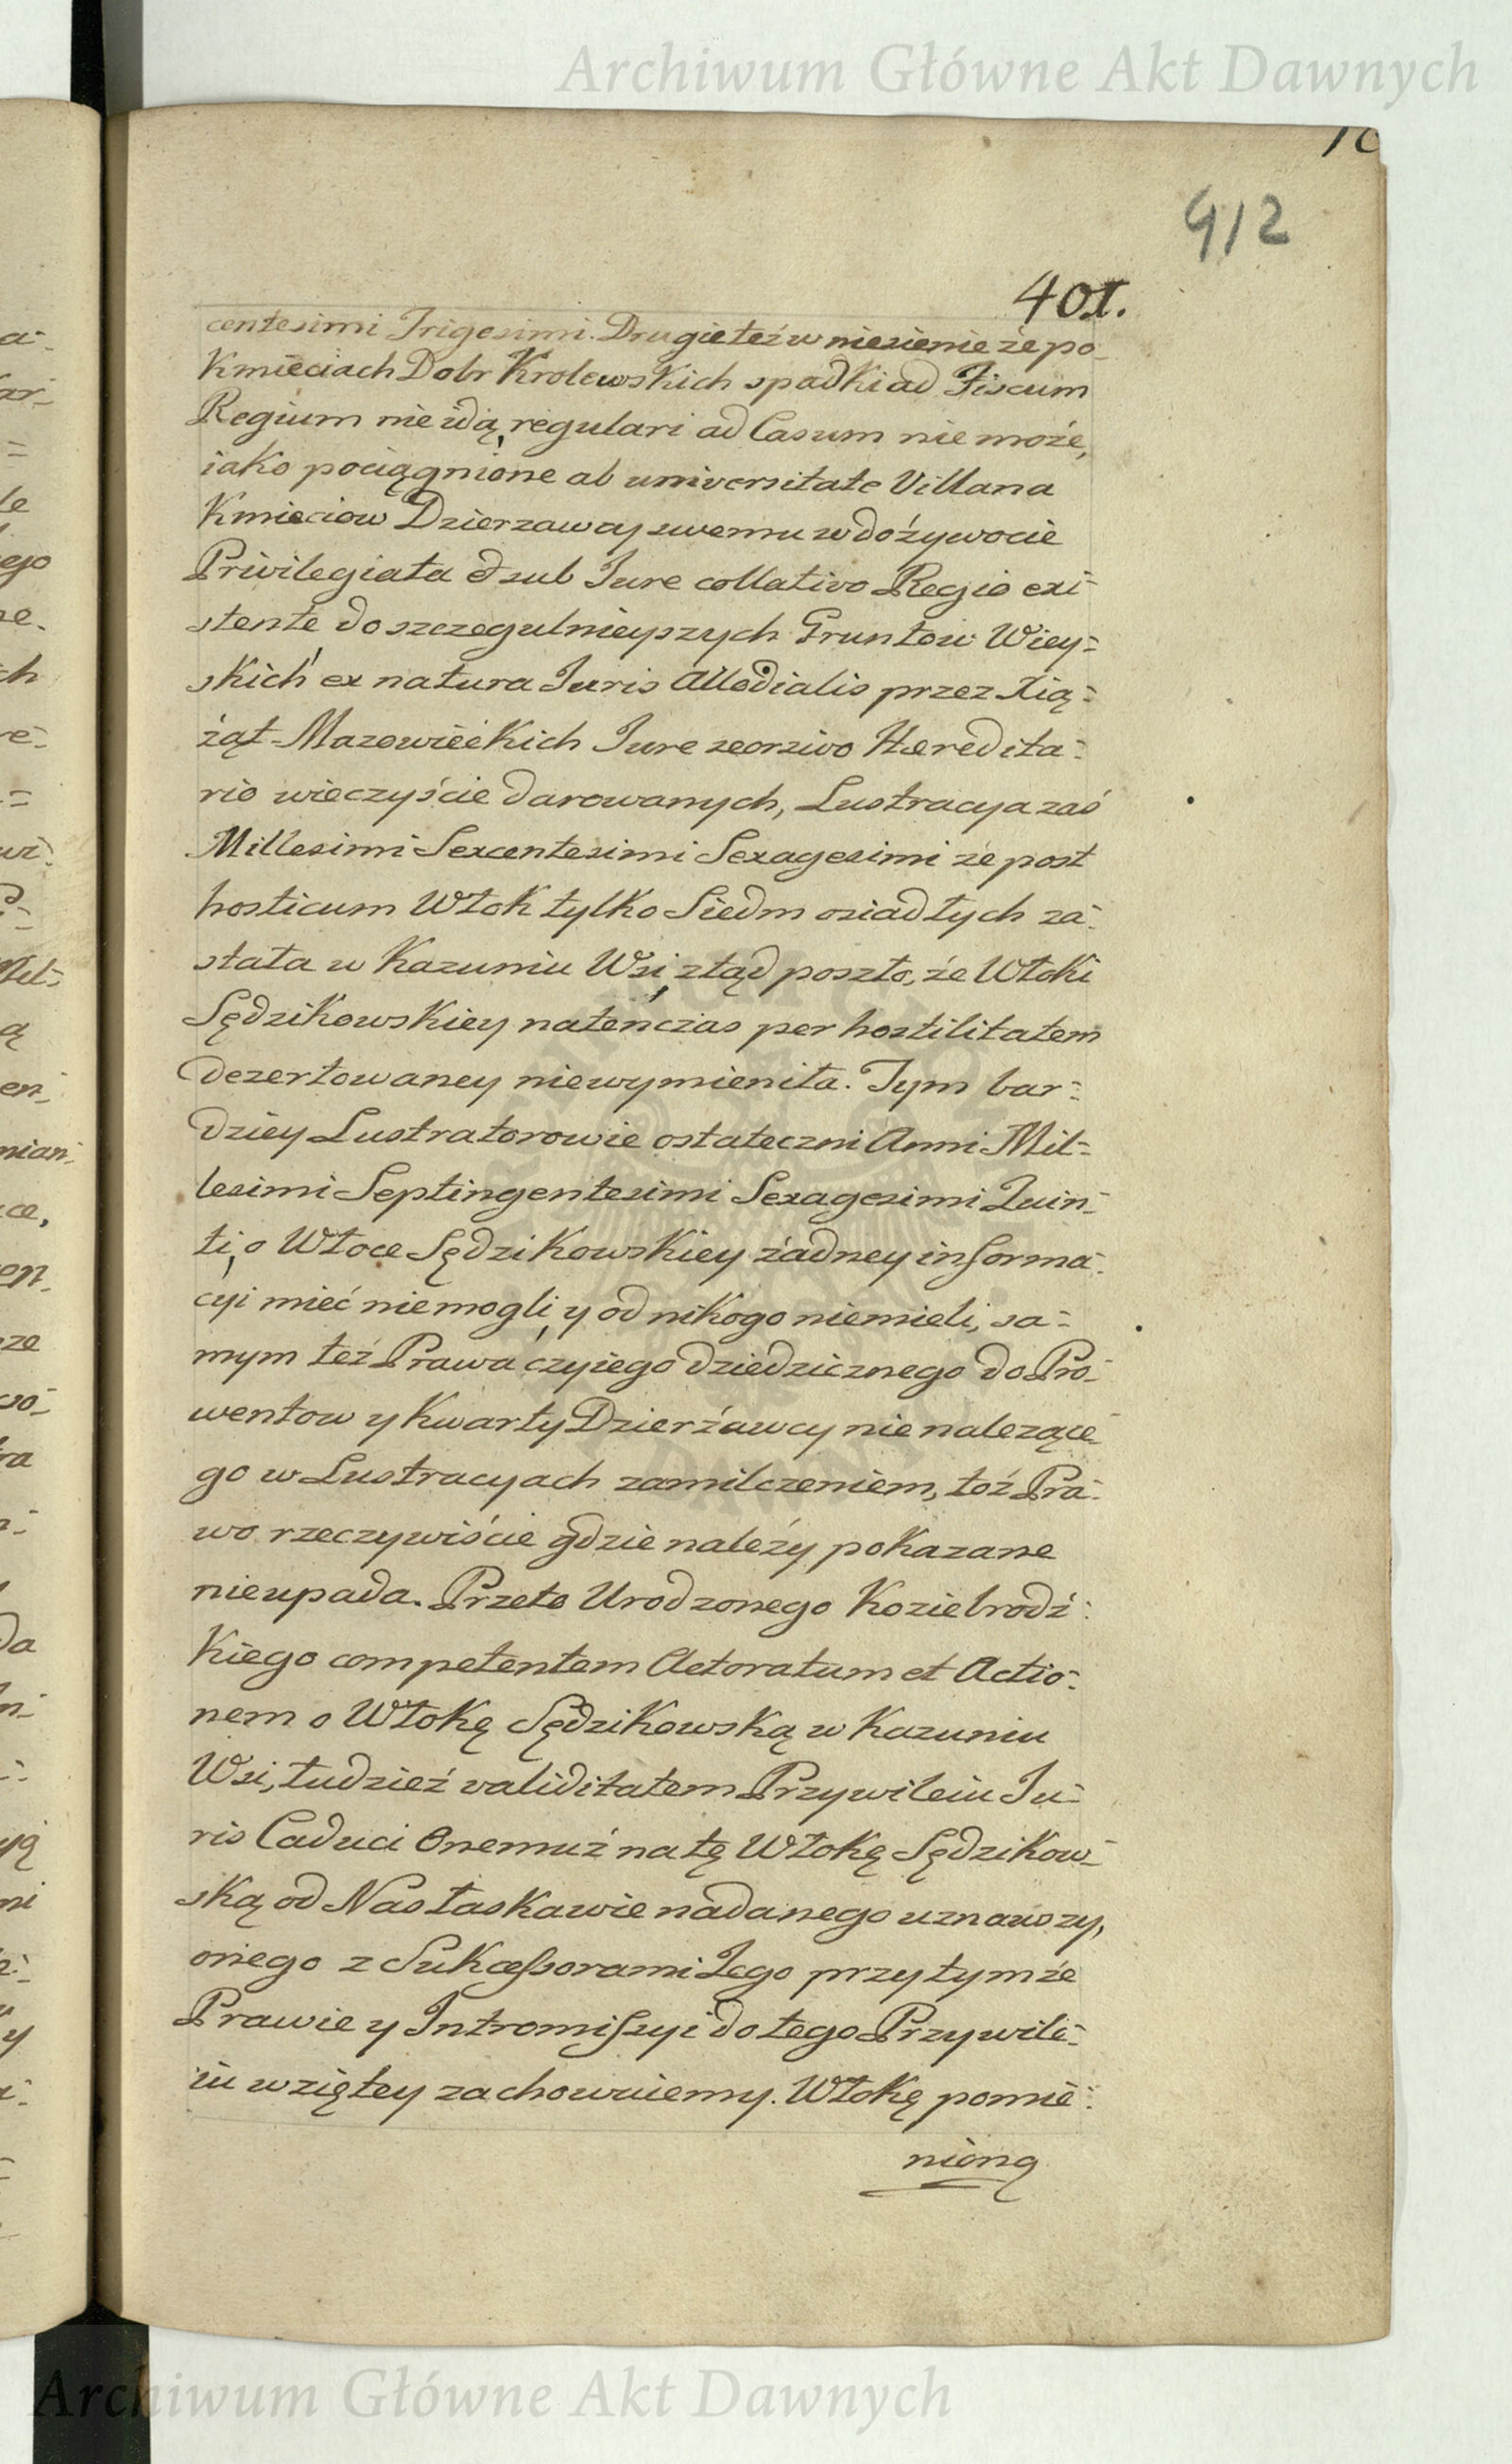 Archiwum Główne Akt Dawnych
912
401.
centesimi Trigesimi. Drugie też wniesienie że po
Kmieciach Dobr Krolewskich spadki ad Fiscum
Regium nie idą, regulari ad Casum nie może,
iako pociągnione ab universitate Villana
Kmieciow Dzierzawcy swemu w dożywocie
Privilegiata et sub Jure collativo Regio exi=
stente do szczegulnieyszych Gruntow Wiey=
skich ex natura Juris Allodialis przez Xią=
żąt Mazowieckich Jure seorsivo Haeredita=
rio wieczyście darowanych, Lustracya zaś
Millesimi Sexcentesimi Sexagesimi że post
hosticum Włok tylko Siedm osiadłych za=
stała w Kazuniu Wsi, ztąd poszło, że Włoki
Sędzikowskiey natenczas per hostilitatem
dezertowaney niewymieniła. Tym bar=
dziey Lustratorowie ostateczni Anni Mil=
lesimi Septingentesimi Sexagesimi Quin=
ti, o Włoce Sędzikowskiey żadney informa=
cyi mieć niemogli, y od nikogo niemieli, sa=
mym też Prawa czyiego dziedzicznego do Pro=
wentow y Kwarty Dzierżawcy nie nalezące=
go w Lustracyach zamilczeniem, toż Pra=
wo rzeczywiście gdzie należy pokazane
nieupada. Przeto Urodzonego Koziebrodz=
kiego competentem Actoratum et Actio=
nem o Włokę Sędzikowską w Kazuniu
Wsi, tudzież validitatem Przywileiu Ju=
ris Caduci Onemuż na tę Włokę Sędzikow=
ską od Nas łaskawie nadanego uznawszy,
onego z Sukcessorami Jego przy tymże
Prawie y Intromissyi do tego Przywile=
iu wziętey zachowuiemy. Włokę pomie=
nioną
Archiwum Główne Akt Dawnych